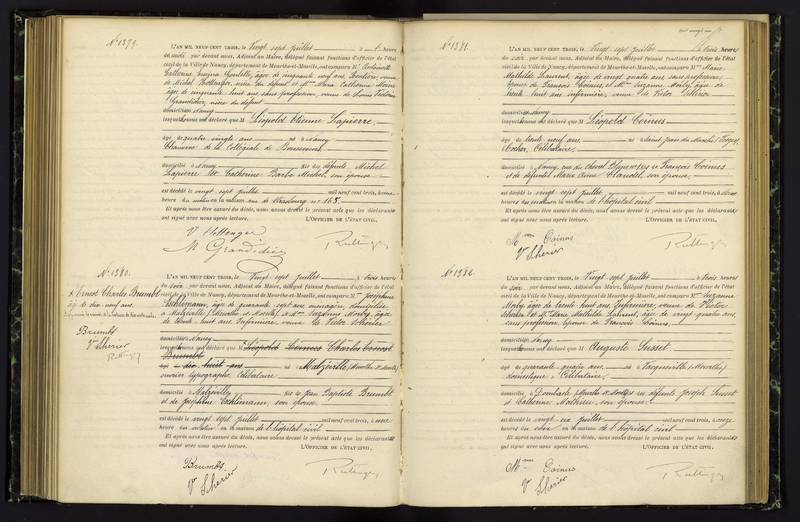 N° 1379.
L'AN MIL NEUF CENT TROIS, le Vingt sept juillet à heure
du par devant nous, Adjoint au Maire, délégué faisant fonctions d'officier de l'état
civil de la Ville de Nancy, département de Meurthe-et-Moselle, ont comparu
Catherine âgée de cinquante neuf ans, veuve
de Michel du défunt et Mme Marie Catherine
âgée de cinquante huit ans sans profession, veuve de
Grandidier, nièce du défunt
domiciliées à Nancy
lesquelles nous ont déclaré que M Léopold Etienne Lapierre,
âgé de quatre vingts ans né à Nancy
Chanoine de la Collégiale de Bonsecours
domicilié à Nancy fils des défunts Michel
Lapierre et Catherine Barbe Michel, son épouse
est décédé le vingt sept juillet mil neuf cent trois, à
heure du en la maison rue de Strasbourg n° 168.
Et après nous être assuré du décès, nous avons dressé le présent acte que les déclarants
ont signé avec nous après lecture. L'OFFICIER DE L'ÉTAT CIVIL,
M Grandidier
N° 1380.
L'AN MIL NEUF CENT TROIS, le Vingt sept juillet à trois heures
du soir par devant nous, Adjoint au Maire, délégué faisant fonctions d'officier de l'état
civil de la Ville de Nancy, département de Meurthe-et-Moselle, ont comparu Mme Joséphine
âgée de quarante sept ans ménagère, domiciliée
à Malzéville (Meurthe et Moselle) et Mme Suzanne Morby, âgée
de trente huit ans infirmière, veuve de Victor Scherier
domiciliée à Nancy
lesquelles nous ont déclaré que M Léopold Coinus Charles Ernest
Brumbt
âgé de dix huit ans né à Malzéville (Meurthe et Moselle)
ouvrier typographe, Célibataire
domicilié à Malzéville fils de Jean Baptiste Brumbt
et de Joséphine son épouse
est décédé le vingt sept juillet mil neuf cent trois, à onze
heures du matin en la maison de l'hôpital civil
Et après nous être assuré du décès, nous avons dressé le présent acte que les déclarants
ont signé avec nous après lecture. L'OFFICIER DE L'ÉTAT CIVIL,
Brumbt
Vve Scherier
x Ernest Charles Brumbt
âgé de dix neuf ans
Brumbt
Vve Scherier
N° 1381.
L'AN MIL NEUF CENT TROIS, le Vingt sept juillet à trois heures
du soir par devant nous, Adjoint au Maire, délégué faisant fonctions d'officier de l'état
civil de la Ville de Nancy, département de Meurthe-et-Moselle, ont comparu Mme Marie
Mathilde Laurent, âgée de vingt quatre ans, sans profession,
épouse de François Coinus, et Mme Suzanne Morby, âgée de
trente huit ans infirmière, veuve de Victor Scherier
domiciliées à Nancy
lesquelles nous ont déclaré que M Léopold Coinus
âgé de trente neuf ans né à Saint Jean du Marché (Vosges)
Cocher, Célibataire
domicilié à Nancy, rue du Cheval Blanc fils de François Coinus
et de défunte Marie Anne Claudel, son épouse,
est décédé le vingt sept juillet mil neuf cent trois, à
heures du matin en la maison de l'hôpital civil
Et après nous être assuré du décès, nous avons dressé le présent acte que les déclarants
ont signé avec nous après lecture. L'OFFICIER DE L'ÉTAT CIVIL,
Mme Coinus
Vve Scherier
N° 1382
L'AN MIL NEUF CENT TROIS, le Vingt sept juillet à trois heures
du soir par devant nous, Adjoint au Maire, délégué faisant fonctions d'officier de l'état
civil de la Ville de Nancy, département de Meurthe-et-Moselle, ont comparu Mme Suzanne
Morby âgée de trente huit ans, infirmière, veuve de Victor
Scherier et Mme Marie Mathilde Laurent, âgée de vingt quatre ans,
sans profession, épouse de François Coinus,
domiciliées à Nancy
lesquelles nous ont déclaré que M Auguste Susset
âgé de quarante quatre ans né à (Moselle)
domestique, Célibataire
domicilié à Dombasle (Meurthe et Moselle) fils des défunts Joseph Susset
et Catherine Mathieu, son épouse
est décédé le vingt six juillet mil neuf cent trois, à onze
heures du soir en la maison de l'hôpital civil
Et après nous être assuré du décès, nous avons dressé le présent acte que les déclarants
ont signé avec nous après lecture. L'OFFICIER DE L'ÉTAT CIVIL,
Mme Coinus
Vve Scherier